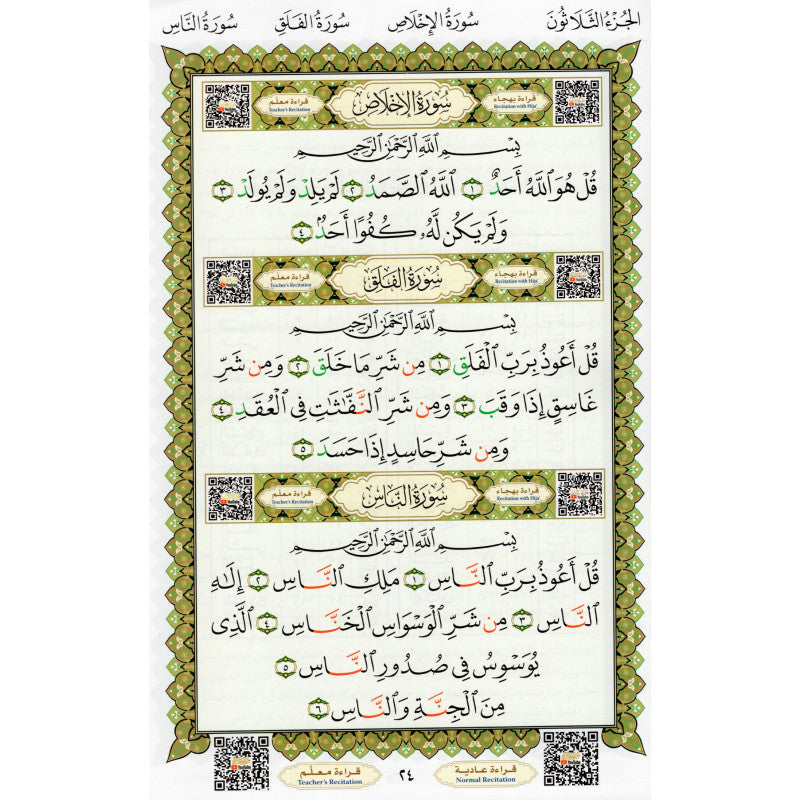 الجُزْءُ الثَّلَاثُونَ سُورَةُ الإِخْلَاصِ سُورَةُ الفَلَقِ سُورَةُ النَّاسِ
قراءة بهجاء سُورَةُ الإِخْلَاصِ قراءة معلّم
Recitation with Hija' Teacher's Recitation
بِسْمِ ٱللَّهِ ٱلرَّحْمَٰنِ ٱلرَّحِيمِ
قُلْ هُوَ ٱللَّهُ أَحَدٌ ١ ٱللَّهُ ٱلصَّمَدُ ٢ لَمْ يَلِدْ وَلَمْ يُولَدْ ٣
وَلَمْ يَكُن لَّهُۥ كُفُوًا أَحَدٌۢ ٤
قراءة بهجاء سُورَةُ الفَلَقِ قراءة معلّم
Recitation with Hija' Teacher's Recitation
بِسْمِ ٱللَّهِ ٱلرَّحْمَٰنِ ٱلرَّحِيمِ
قُلْ أَعُوذُ بِرَبِّ ٱلْفَلَقِ ١ مِن شَرِّ مَا خَلَقَ ٢ وَمِن شَرِّ
غَاسِقٍ إِذَا وَقَبَ ٣ وَمِن شَرِّ ٱلنَّفَّٰثَٰتِ فِى ٱلْعُقَدِ ٤
وَمِن شَرِّ حَاسِدٍ إِذَا حَسَدَ ٥
قراءة بهجاء سُورَةُ النَّاسِ قراءة معلّم
Recitation with Hija' Teacher's Recitation
بِسْمِ ٱللَّهِ ٱلرَّحْمَٰنِ ٱلرَّحِيمِ
قُلْ أَعُوذُ بِرَبِّ ٱلنَّاسِ ١ مَلِكِ ٱلنَّاسِ ٢ إِلَٰهِ
ٱلنَّاسِ ٣ مِن شَرِّ ٱلْوَسْوَاسِ ٱلْخَنَّاسِ ٤ ٱلَّذِى
يُوَسْوِسُ فِى صُدُورِ ٱلنَّاسِ ٥
مِنَ ٱلْجِنَّةِ وَٱلنَّاسِ ٦
قراءة عادية ٢٤ قراءة معلّم
Normal Recitation Teacher's Recitation